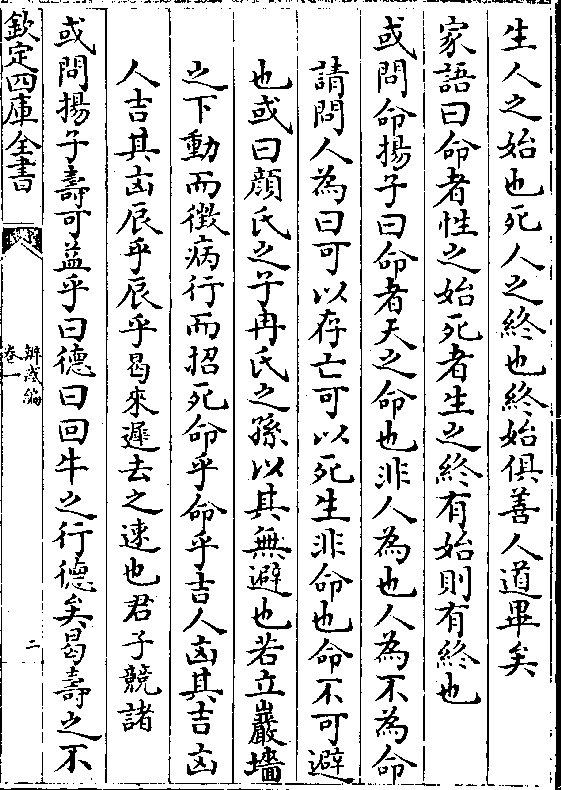 生人之始也死人之終也終始俱善人道畢矣
家語曰命者性之始死者生之終有始則有終也
或問命揚子曰命者天之命也非人為也人為不為命
請問人為曰可以存亡可以死生非命也命不可避
也或曰顔氏之子冉氏之孫以其無避也若立巖墻
之下動而徴病行而招死命乎命乎吉人凶其吉凶
人吉其凶辰乎辰乎曷來遲去之速也君子競諸
或問揚子壽可益乎曰德曰回牛之行德矣曷壽之不
欽定四庫全書
辨惑編
卷一
二